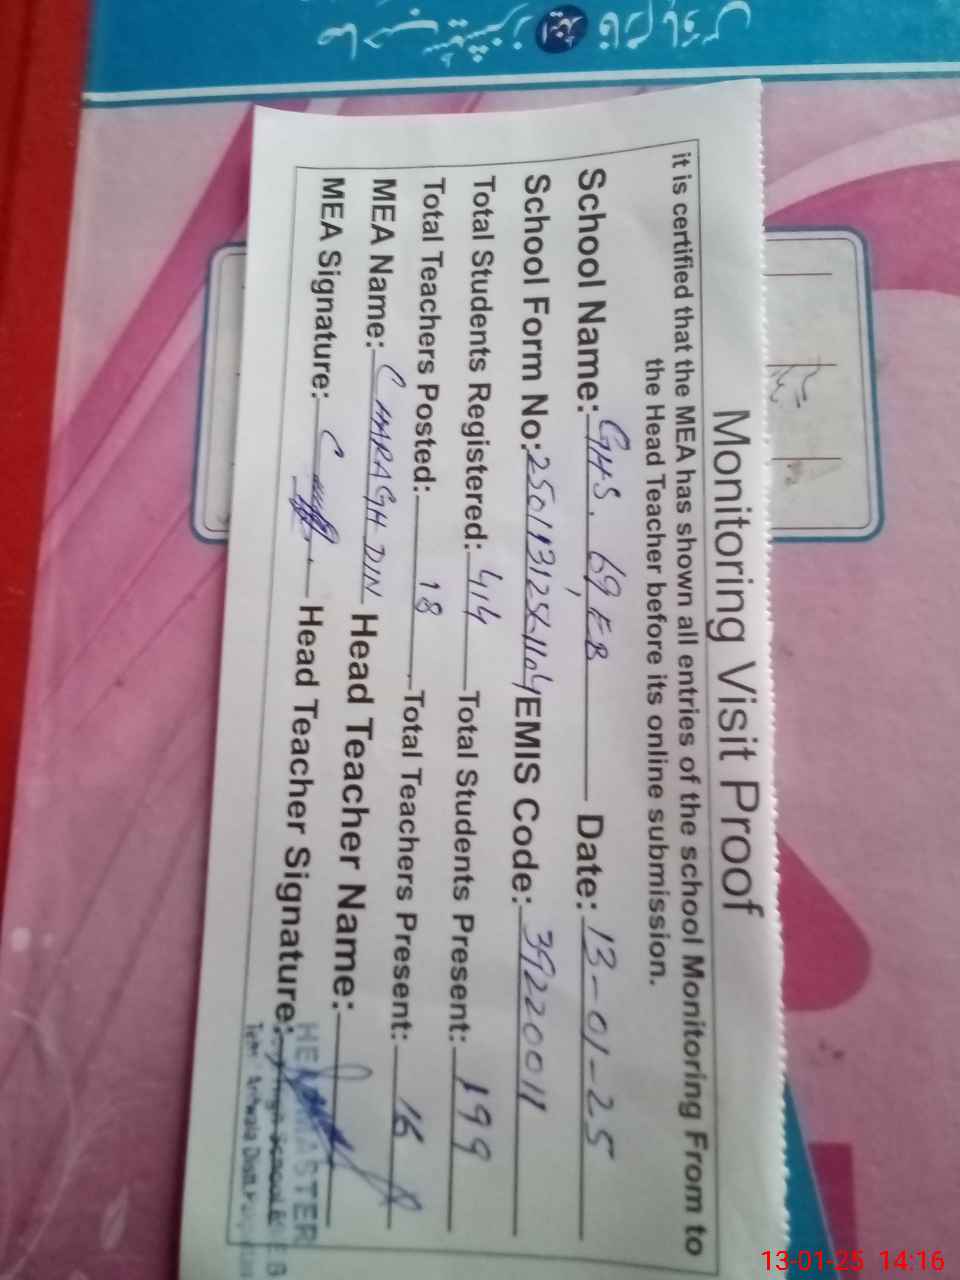 Monitoring Visit Proof
it is certified that the MEA has shown all entries of the school Monitoring From to
the Head Teacher before its online submission.
School Name: GHS. 69, EB Date: 13-01-25
School Form No: EMIS Code: 39220011
Total Students Registered: 414 Total Students Present: 199
Total Teachers Posted: 18 Total Teachers Present: 16
MEA Name: CHARAGH DIN Head Teacher Name:
MEA Signature: Head Teacher Signature:
HEADMASTER
13-01-25 14:16